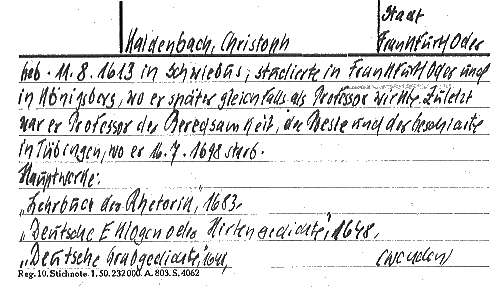 Stadt
Kaldenbach, Christoph Frankfurt Oder
geb. 11.8.1613 in Schwiebus, studierte in Frankfurt Oder und
in Königsberg, wo er später gleichfalls als Professor wirkte. Zuletzt
war er Professor der Beredsamkeit, der Poesie und der Geschichte
in Tübingen, wo er 16.7.1698 starb.
Hauptwerke:
„Lehrbuch der Rhetorik, 1683,
„Deutsche Eklogen oder Hirtengedichte", 1648,
„Deutsche Grabgedichte", 1648,
Reg. 10. Stichnote 1. 50. 232000. A. 803. S. 4062